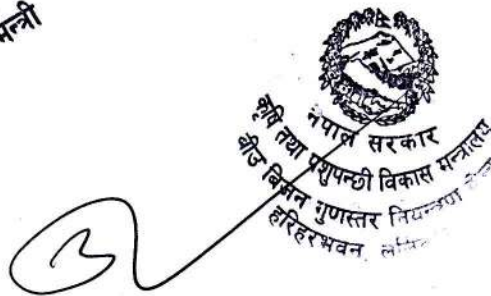 मन्त्री
नेपाल सरकार
कृषि तथा पशुपन्छी विकास मन्त्रालय
बीउ बिजन गुणस्तर नियन्त्रण
हरिहरभवन,